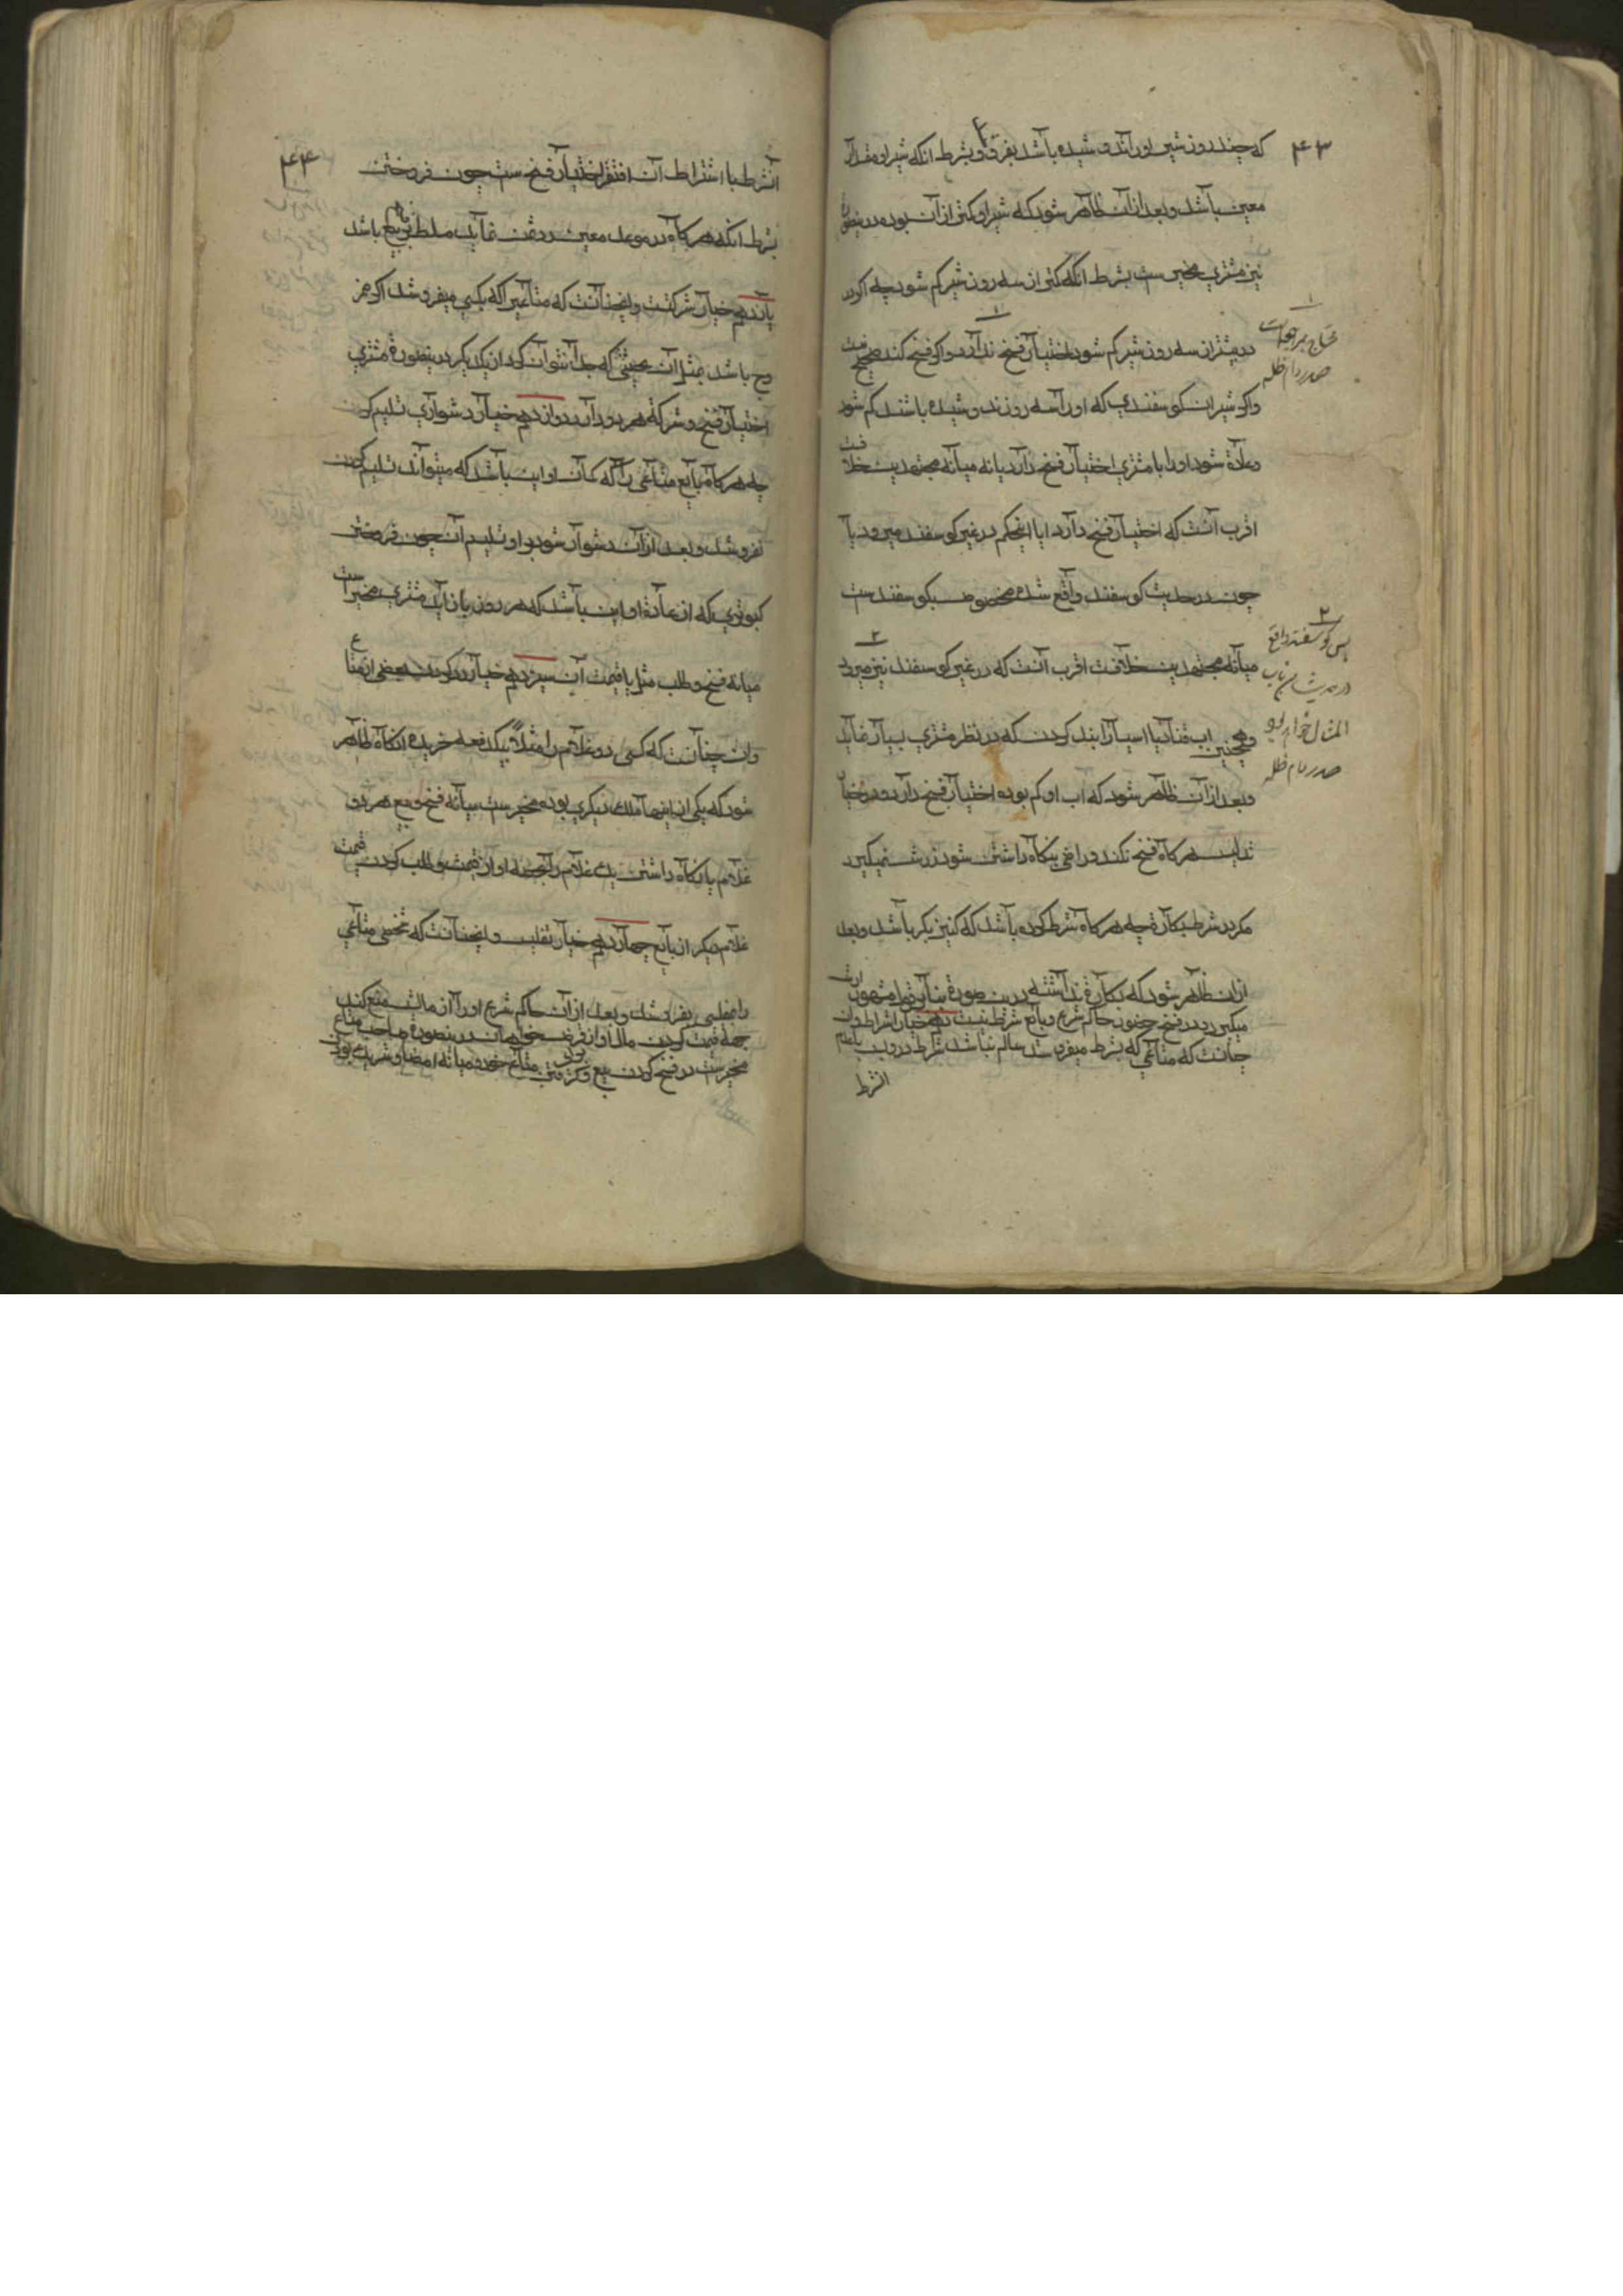 ۴۳
که چند روز شیر او را ندوشیده باشد بفروشد و بشرط انکه شیر او مقدار
معین باشد و بعد از آن ظاهر شود که شیر او کمتر از آن بوده درینصورة
نیز مشتری مخیر ست بشرط انکه کمتر از سه روز شیر کم شود چه اکر در
بیشتر از سه روز شیر کم شود اختیار فسخ ندارد و اکر فسخ کند صحیح نیست
و اکر شیر ان کوسفندی که او را سه روز ندوشیده باشند کم شود
و عادة شود او را با مشتری اختیار فسخ دارد یا نه میانه مجتهدین خلافست
اقرب آنست که اختیار فسخ دارد ایا اینحکم در غیر کوسفند میرود یا
چون در حدیث کوسفند واقع شده مخصوص بکوسفند ست
میانه مجتهدین خلافست اقرب آنست که در غیر کوسفند نیز میرود
و همچنین اب قنات یا اسیا را بند کردن که در نظر مشتری بسیار نماید
و بعد از آن ظاهر شود که اب او کم بوده اختیار فسخ دارد و در خیار
تدلیس هر کاه فسخ نکند و راضی بنکاه داشتن شود ارش نمیکیرد
مکر در شرط بکارة چه هر کاه شرط کرده باشد که کنیز بکر باشد و بعد
از ان ظاهر شود که بکارة نداشته درین صورة بنابر قول مشهور ارش
میکیرد و در فسخ حضور حاکم شرع و بایع شرط نیست دهم خیار اشتراط و ان
چنانست که متاعی که بشرط میفروشد سالم نباشد شرط در و بسبب
الشرط
۱
محتاج بمراجعت
صدر دام ظله
۲
پس کوسفند واقع
در حدیث از باب
المثال خواهد بود
صدر دام ظله
۴۴
انشرط با اشتراط آن اختیار فسخ ست چون فروختن
بشرط انکه هر کاه در موعد معین رد ثمن نماید مسلط بر فسخ بیع باشد
یازدهم خیار شرکت و اینچنانست که متاعیرا که بکسی میفروشد اکر ممز
وج باشد بمثل آن بحیثیتی که جدا نتوان کرد از یکدیکر درینصورة مشتری
اختیار فسخ و شرکة هر دو دارد دوازدهم خیار دشواری تسلیم کردن
چه هر کاه بایع متاعی را که کمان او این باشد که میتواند تسلیم کردن
بفروشد و بعد از آن دشوار شود بر او تسلیم آن چون فروختن
کبوتری که از عادة او این باشد که هر روز باز اید مشتری مخیر است
میانه فسخ و طلب مثل یا قیمت آن سیزدهم خیار رد کردن بعضی از متاع
و ان چنانست که کسی دو غلام را مثلاً بیکدفعه خریده انکاه ظاهر
شود که یکی از اینها ملک دیکری بوده مخیر ست میانه فسخ و بیع هر دو
غلام یا نکاه داشتن یک غلام را بحصه او از قیمت و طلب کردن قیمت
غلام دیکر از بایع چهاردهم خیار تفلیس و اینچنانست که شخصی متاعی
را بمفلسی بفروشد و بعد از آن حاکم شرع او را از مالش منع کند
بجهة قیمت کردن مال او از قرض خواهان درینصورة صاحب متاع
مخیر ست در فسخ کردن بیع و کرفتن متاع خود و میانه امضا و شریک بودن